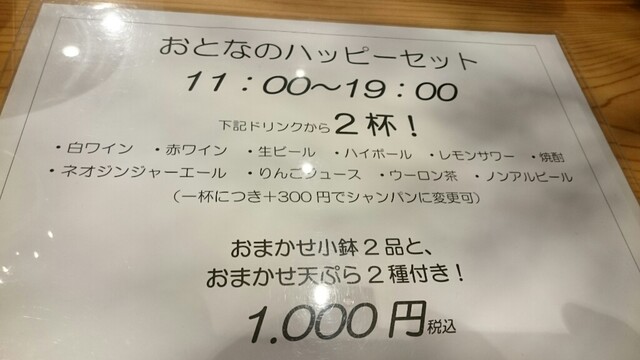 おとなのハッピーセット
11:00〜19:00
下記ドリンクから2杯!
・白ワイン ・赤ワイン ・生ビール ・ハイボール ・レモンサワー ・焼酎
・ネオジンジャーエール ・りんごジュース ・ウーロン茶 ・ノンアルビール
(一杯につき+300円でシャンパンに変更可)
おまかせ小鉢2品と、
おまかせ天ぷら2種付き!
1.000円税込